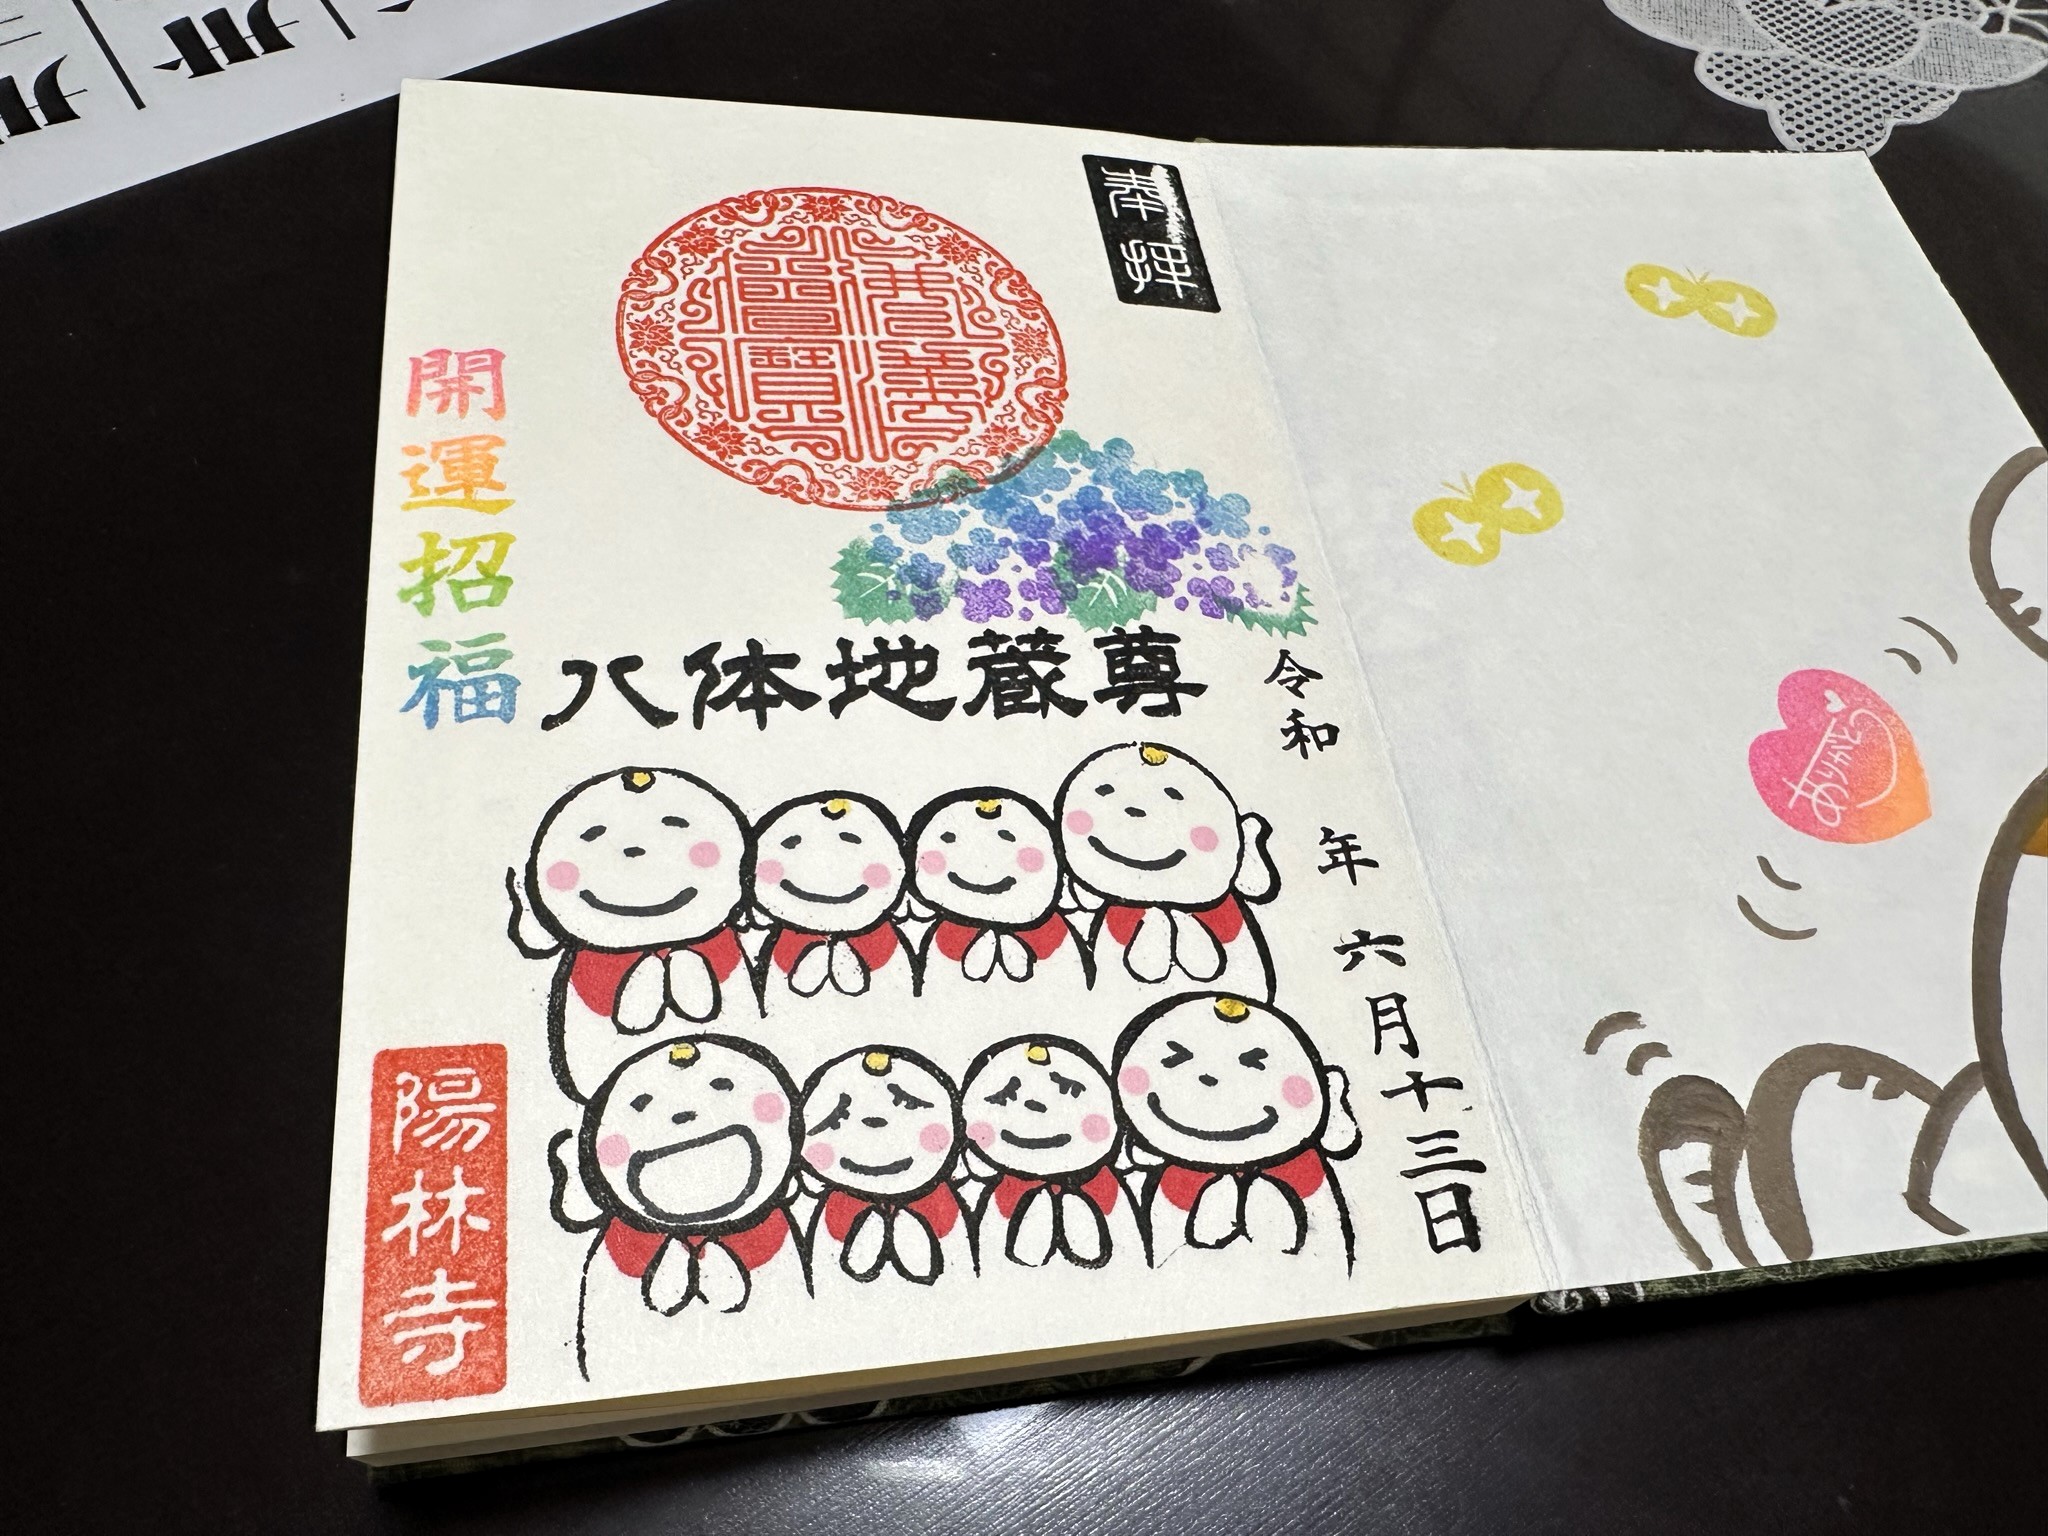 奉拝
八体地蔵尊
令和 年 六月十三日
開運招福
陽林寺
ありがとう